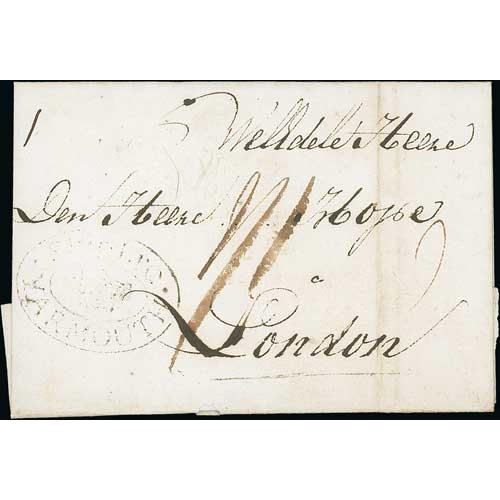 1
Welldele Heere
Den Heere Hope
a
London
YARMOUTH